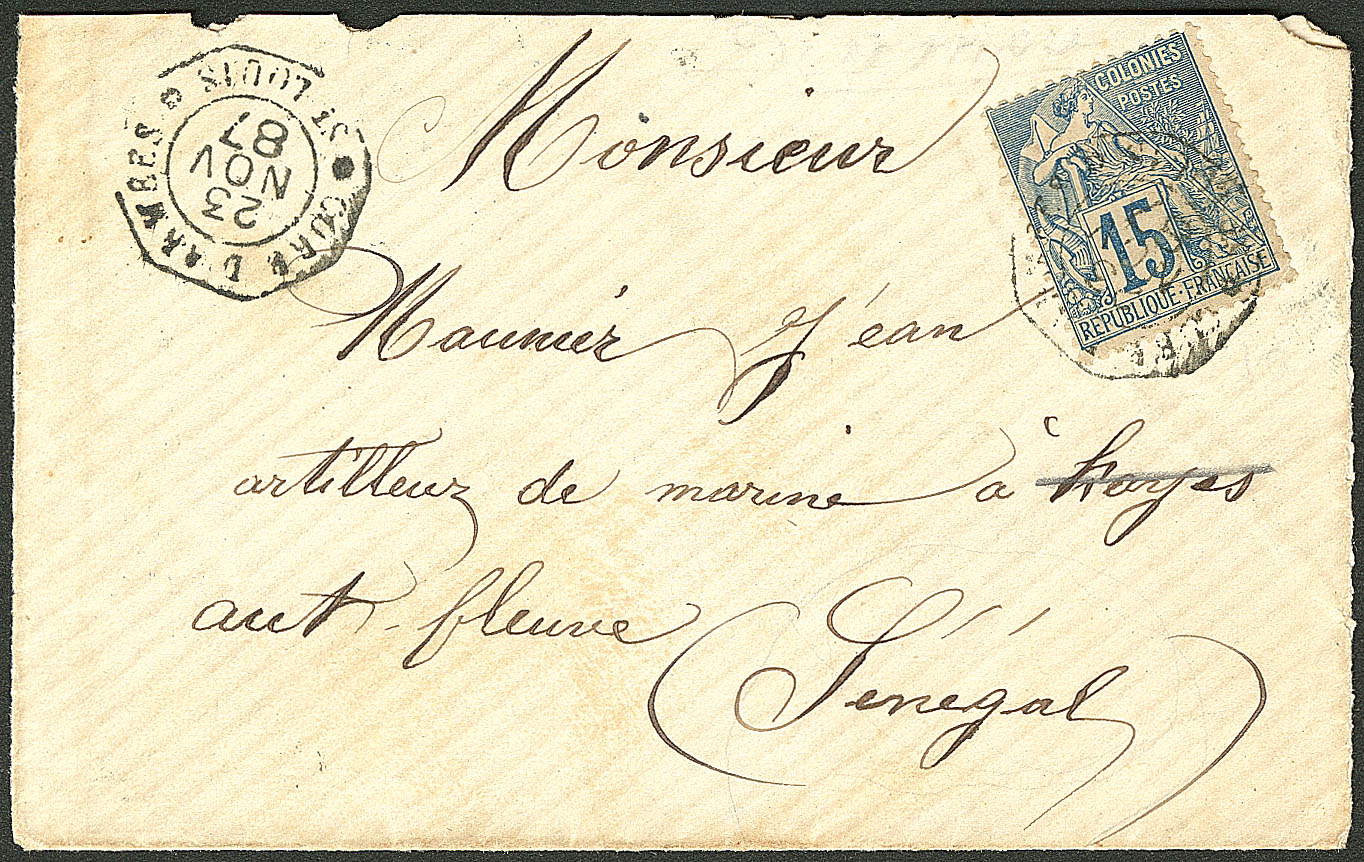 ST LOUIS
CORR. D'ARMÉES
23
NOV
87
COLONIES
POSTES
15
RÉPUBLIQUE·FRANÇAISE
Monsieur
Maunier Jean
artilleur de marine à Kayes
aut fleuve
(Sénégal)